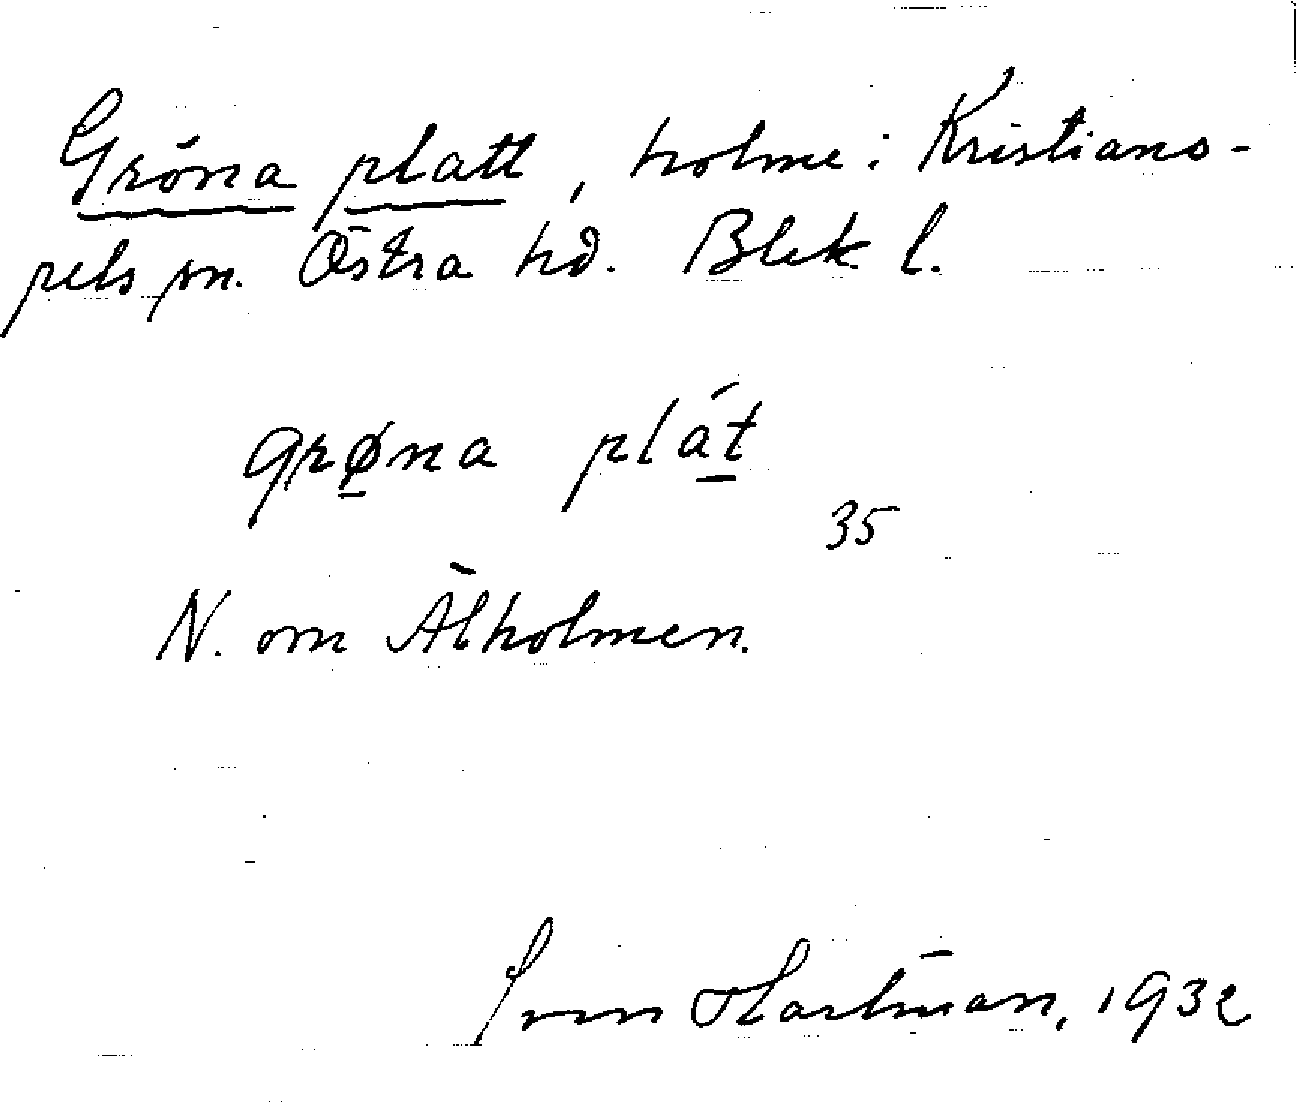 Gröna platt, holme i Kristiano-
pels sn. Östra hd. Blek. l.
grø̱na plá̱t
35
N. om Ålholmen.
Sven Hartman, 1932